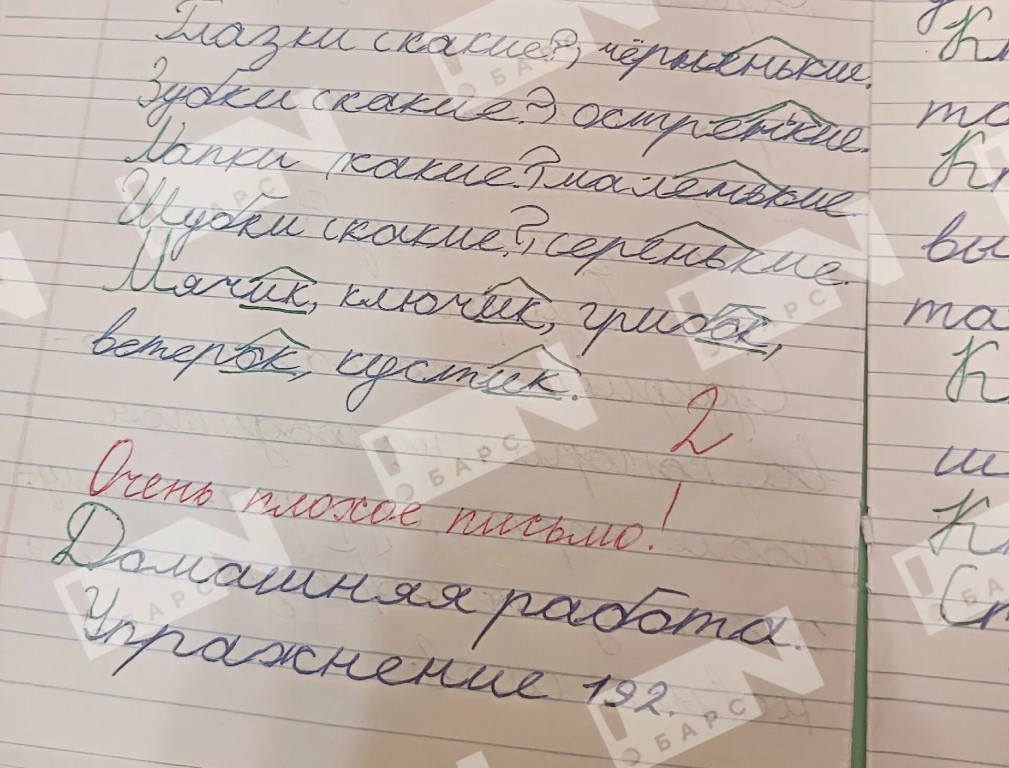 Глазки (какие?) чёрненькие.
Зубки (какие?) остренькие.
Лапки (какие?) маленькие.
Шубки (какие?) серенькие.
Мячик, ключик, грибок,
ветерок, кустик.
2
Очень плохое письмо!
Домашняя работа.
Упражнение 192.
БАРС